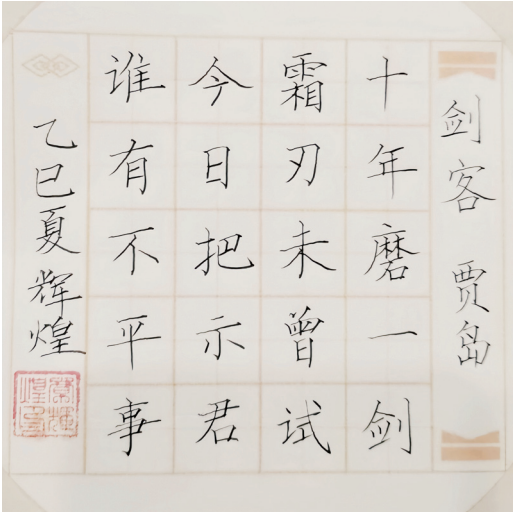 剑客 贾岛
十年磨一剑
霜刃未曾试
今日把示君
谁有不平事
乙巳夏辉煌